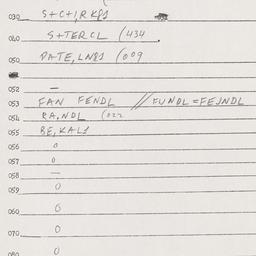 030 S+C+1,RK81
040 S+TERCL (434
050 DATE,LN81 (009
052 —
053 FAN FENDL //FUNDL=FEJNDL
054 RA,NDL (022
055 BE,KAL1
056 0
057 0
058 —
059 0
060 0
070 0
080 0